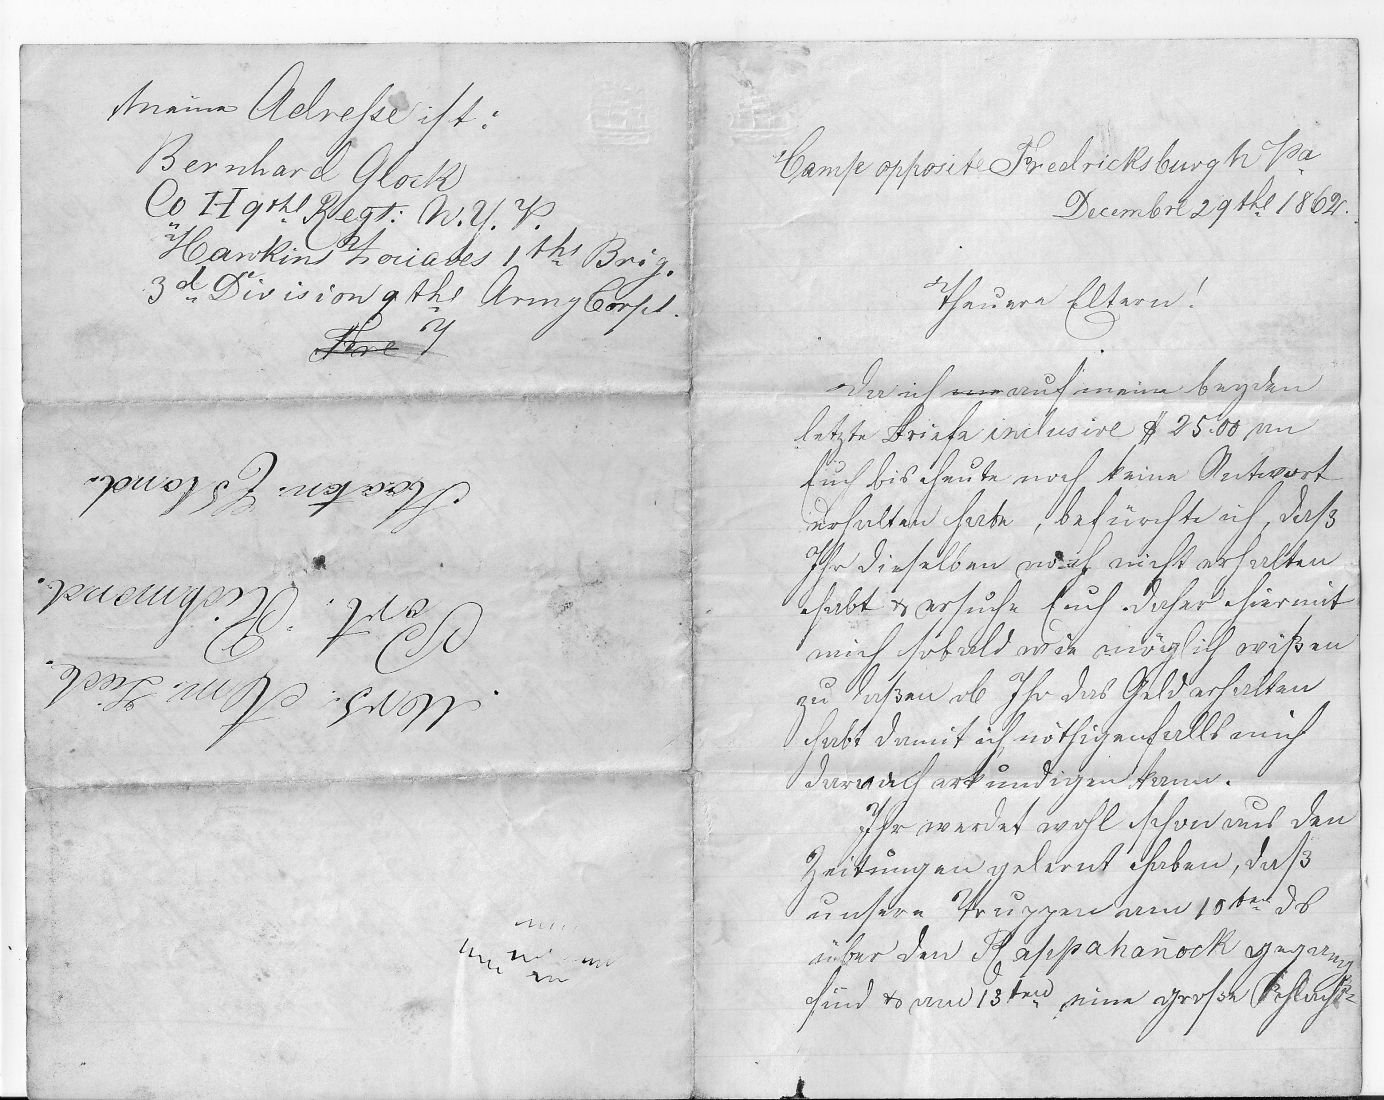 Meine Adresse ist:
Bernhard Glock
Co H 9the Regt: N. Y. V.
"Hawkins Zouaves 1ths Brig.
3d Division 9the Army Corps.
Mers. Am.
Port. Richmond.
Staaten Island.
Camp opposite Fredricksburgh Va
Decembre 29the 1862.
Theuere Eltern!
Da ich auf meine beyden
letzte Briefe inclusive $ 25.00 an
Euch bis heute noch keine Antwort
erhalten habe, befürchte ich, daß
Ihr dieselben noch nicht erhalten
habt & ersuche Euch daher hiermit
mich sobald wie möglich wißen
zu laßen ob Ihr das Geld erhalten
habt damit ich nöthigenfalls mich
darnach erkundigen kann.
Ihr werdet wohl schon aus den
Zeitungen gelernt haben, daß
unsere Truppen am 10ten ds
über den Rappahanock gegang
sind & am 13ten eine große Schlacht